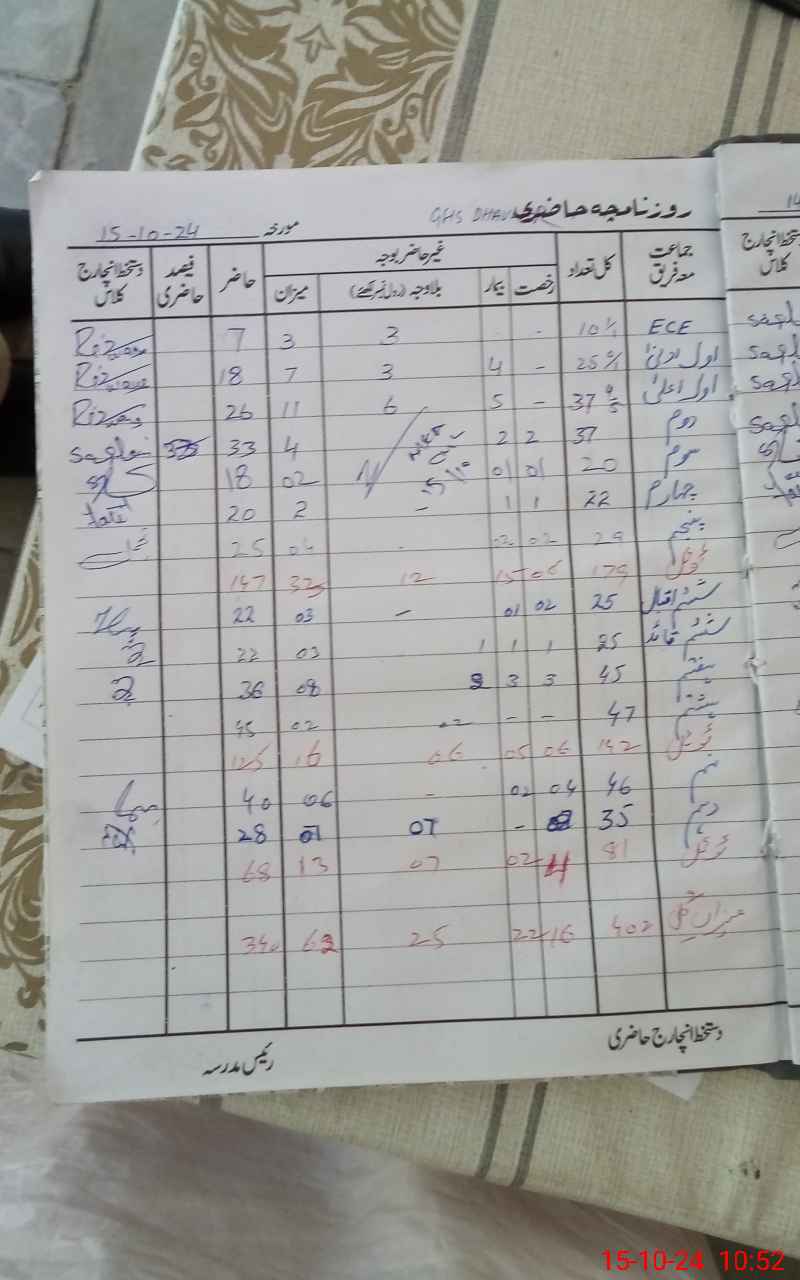 روزنامچہ حاضری GHS
مورخہ 15-10-24
جماعت معہ فریق کل تعداد غیر حاضر بوجہ حاضر فیصد حاضری دستخط انچارج کلاس
رخصت بیمار بلاوجہ (رول نمبر لکھئے) میزان
ECE 10 - 3 3 7
اول ادنیٰ 25 - 4 3 7 18
اول اعلیٰ 37 - 5 6 11 26
دوم 37 2 2 4 33
سوم 20 01 01 02 18
چہارم 22 1 1 - 2 20
پنجم 29 02 02 - 04 25
ٹوٹل 179 06 15 12 147
ششم اقبال 25 02 01 - 03 22
ششم قائد 25 1 1 1 03 22
ہفتم 45 3 3 2 08 36
ہشتم 47 - - 02 02 45
ٹوٹل 142 06 05 06 16 125
نہم 46 04 02 - 06 40
دہم 35 - 07 07 28
ٹوٹل 81 4 02 07 13 68
میزان کل 402 16 22 25 340
دستخط انچارج حاضری
رئیس مدرسہ
15-10-24 10:52